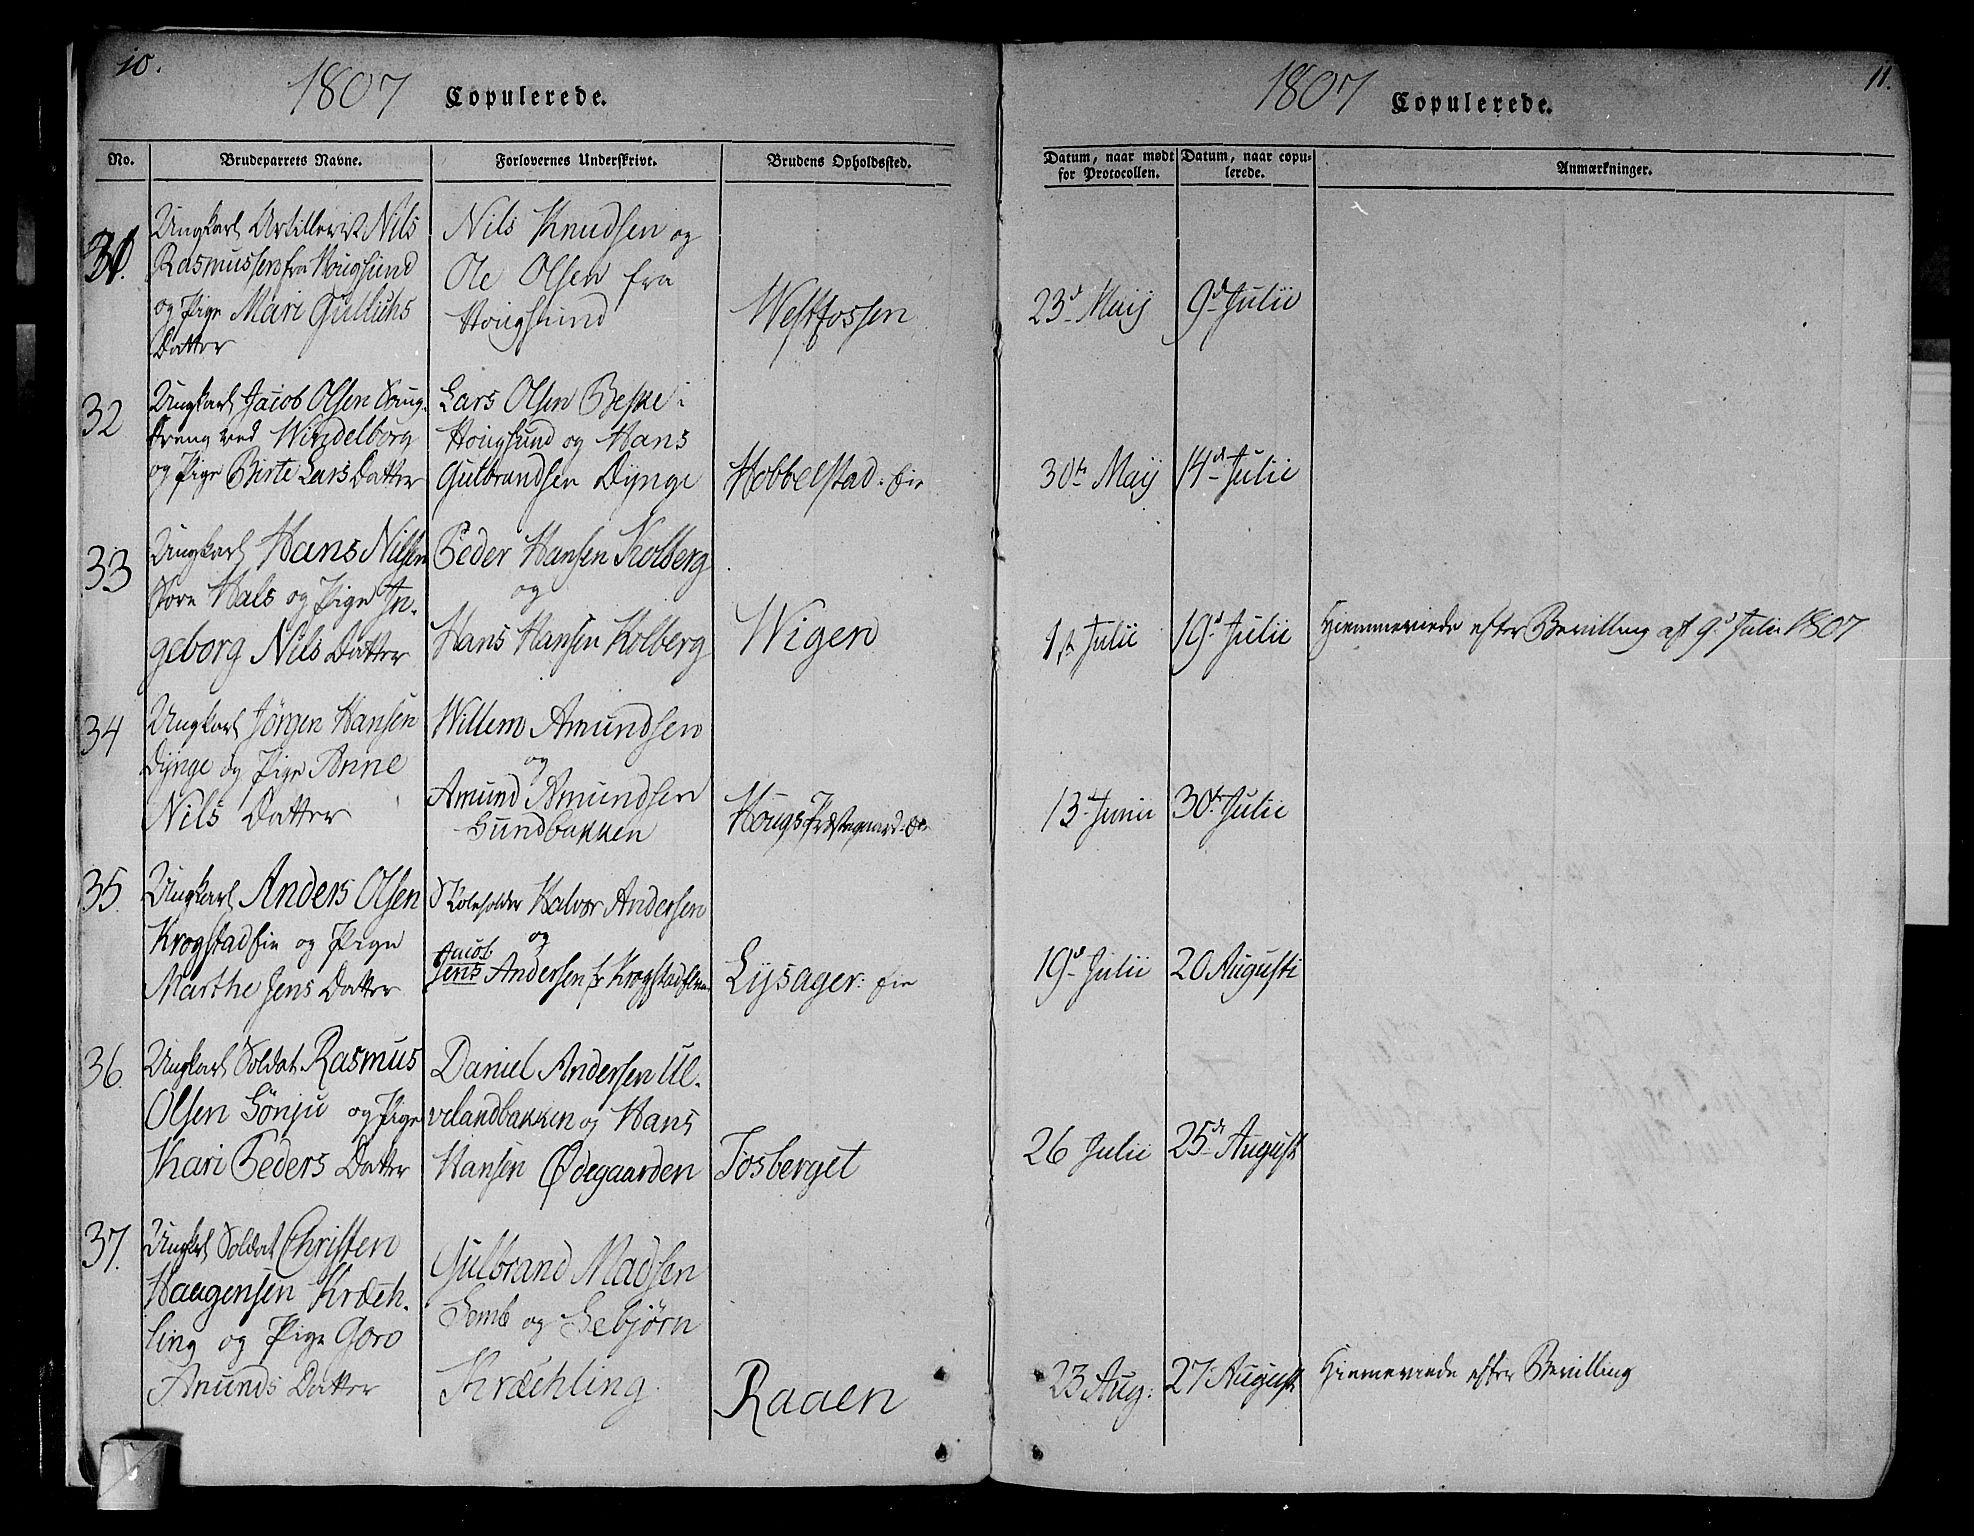 10.
1807 Copulerede.
No. Brudeparrets Navne. Forlovernes Underskrivt. Brudens Opholdssted.
31. Ungkarl Artillerist Nils
Rasmussen fra Hougsund
og Pige Mari Gullichs
Datter
Nils Knudsen og
Ole Olsen fra
Hougsund
Westfossen
32 Ungkarl Jacob Olsen
ved Windelborg
og Pige Birte Lars Datter
Lars Olsen Beske i
Hougsund og Hans
Gulbrandsen Dynge
Hobbelstad: Eie
33 Ungkarl Hans Nilsen
Store Hals og Pige In-
geborg Nils Datter
Peder Hansen Kolberg
og
Hans Hansen Kolberg
Wigen
34 Ungkarl Jörgen Hansen
Dynge og Pige Anne
Nils Datter
Willem Amundsen
og
Amund Amundsen
Sundbakken
Hougs Præstegaard:
35. Ungkarl Anders Olsen
Krogstadeie og Pige
Marthe Jens Datter
Skoleholder Halvor Andersen
og
Jacob
Jens Andersen fr Krogstad
Lysager: Eie
36. Ungkarl Soldat Rasmus
Olsen Sönju og Pige
Kari Peders Datter
Daniel Andersen Ul-
velandbakken og Hans
Hansen Ødegaarden
Fosberget
37. Ungkarl Soldat Christen
Haagensen Kræch-
ling og Pige Goro
Anunds Datter
Gulbrand Madsen
Semb og Sebjörn
Kræchling.
Raaen
11.
1807 Copulerede.
Datum, naar mødt for Protocollen. Datum, naar copulerede. Anmærkninger.
23d Maij 9d Julii
30te Maij 14d Julii
1ste Julii 19d Julii Hiemmeviede efter Bevilling af 9d Julii 1807
13d Junii 30te Julii
19d Julii 20 Augusti
26 Julii 25de August
23 Aug: 27 August Hiemmeviede efter Bevilling